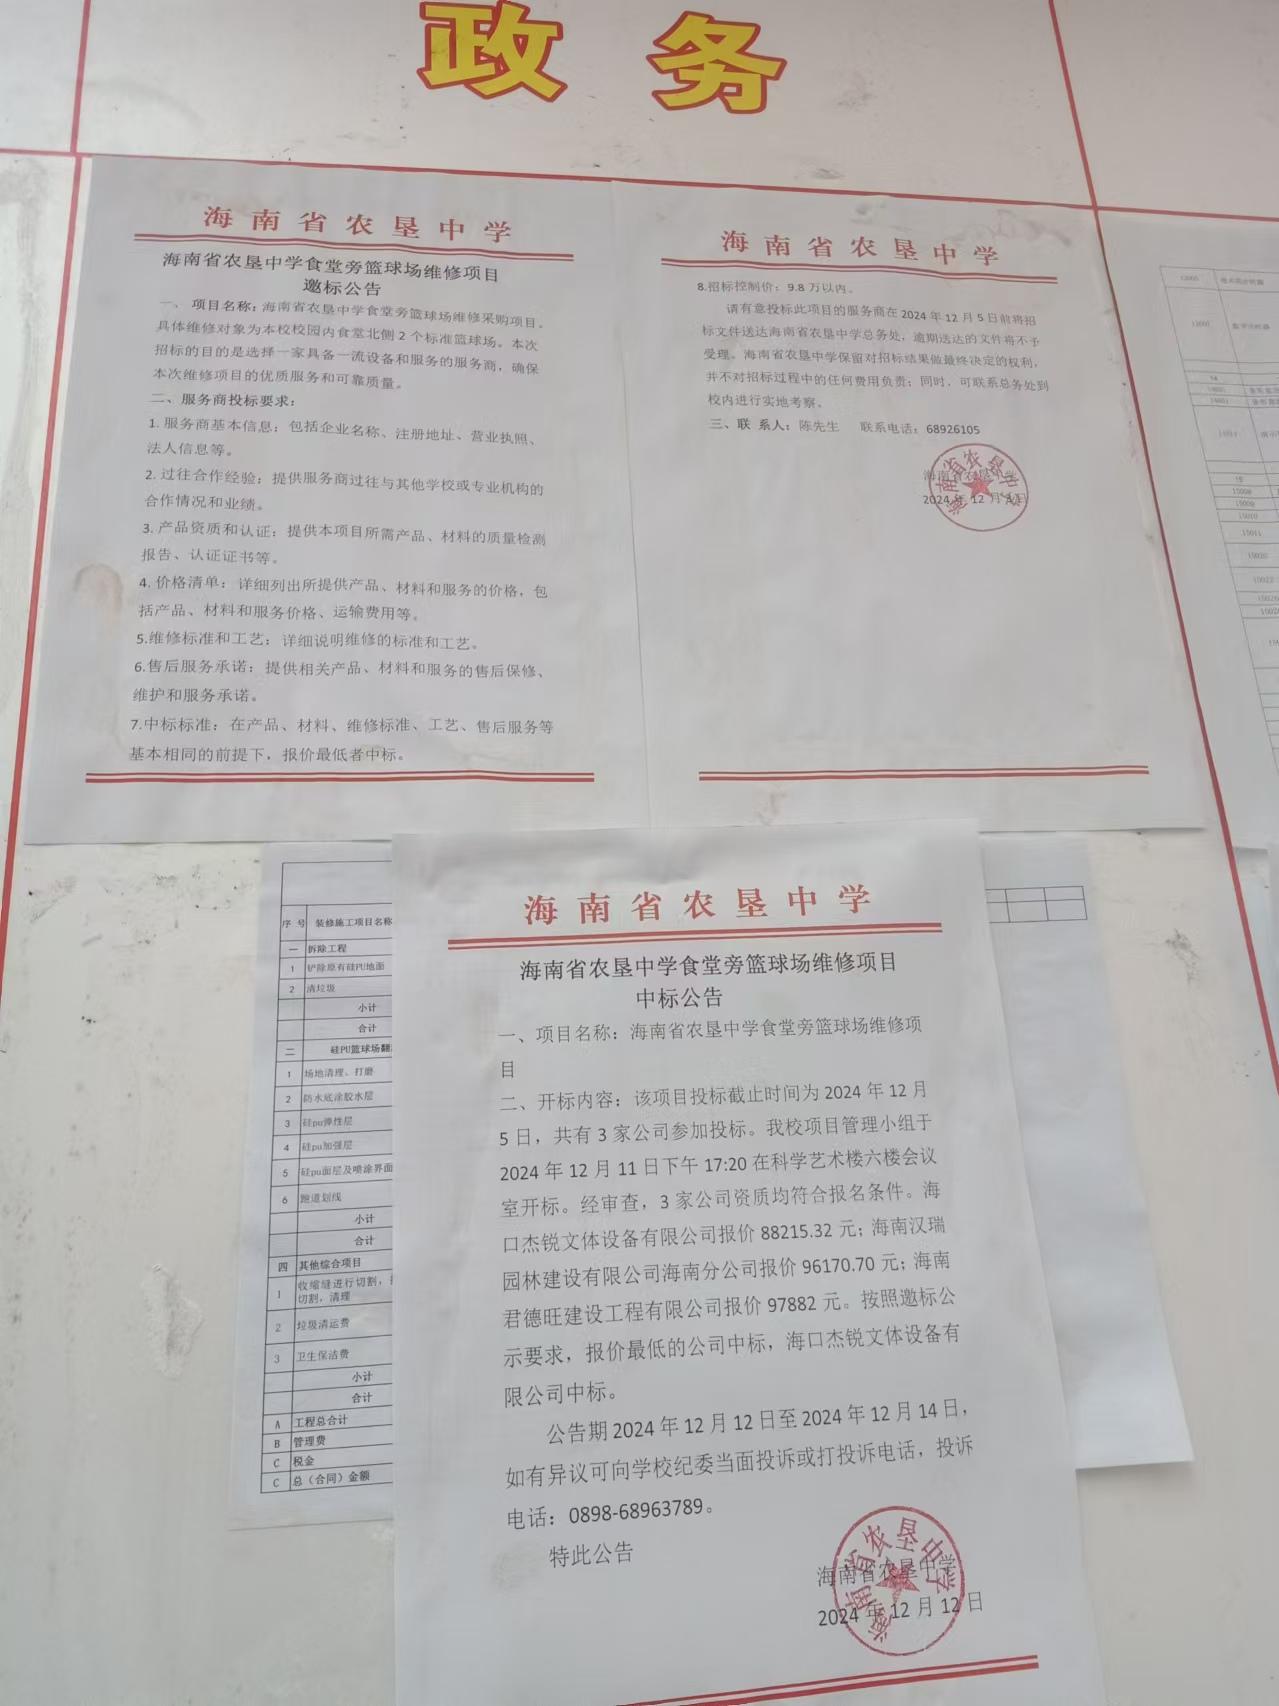 政务
海南省农垦中学
海南省农垦中学食堂旁篮球场维修项目
邀标公告
一、项目名称：海南省农垦中学食堂旁篮球场维修采购项目。
具体维修对象为本校校园内食堂北侧2个标准篮球场。本次
招标的目的是选择一家具备一流设备和服务的服务商，确保
本次维修项目的优质服务和可靠质量。
二、服务商投标要求：
1. 服务商基本信息：包括企业名称、注册地址、营业执照、
法人信息等。
2. 过往合作经验：提供服务商过往与其他学校或专业机构的
合作情况和业绩。
3. 产品资质和认证：提供本项目所需产品、材料的质量检测
报告、认证证书等。
4. 价格清单：详细列出所提供产品、材料和服务的价格，包
括产品、材料和服务价格、运输费用等。
5.维修标准和工艺：详细说明维修的标准和工艺。
6.售后服务承诺：提供相关产品、材料和服务的售后保修、
维护和服务承诺。
7.中标标准：在产品、材料、维修标准、工艺、售后服务等
基本相同的前提下，报价最低者中标。
海南省农垦中学
8.招标控制价：9.8万以内。
请有意投标此项目的服务商在2024年12月5日前将招
标文件送达海南省农垦中学总务处，逾期送达的文件将不予
受理。海南省农垦中学保留对招标结果做最终决定的权利，
并不对招标过程中的任何费用负责；同时，可联系总务处到
校内进行实地考察。
三、联 系人：陈先生 联系电话：68926105
海南省农垦中学
2024年12月
海南省农垦中学
海南省农垦中学食堂旁篮球场维修项目
中标公告
一、项目名称：海南省农垦中学食堂旁篮球场维修项
目
二、开标内容：该项目投标截止时间为2024年12月
5日，共有3家公司参加投标。我校项目管理小组于
2024年12月11日下午17:20在科学艺术楼六楼会议
室开标。经审查，3家公司资质均符合报名条件。海
口杰锐文体设备有限公司报价88215.32元；海南汉瑞
园林建设有限公司海南分公司报价96170.70元；海南
君德旺建设工程有限公司报价97882元。按照邀标公
示要求，报价最低的公司中标，海口杰锐文体设备有
限公司中标。
公告期2024年12月12日至2024年12月14日，
如有异议可向学校纪委当面投诉或打投诉电话，投诉
电话：0898-68963789。
特此公告
海南省农垦中学
2024年12月12日
序号 装修施工项目名称
一 拆除工程
1 铲除原有硅PU地面
2 清垃圾
小计
合计
二 硅PU篮球场翻
1 场地清理、打磨
2 防水底涂胶水层
3 硅pu弹性层
4 硅pu加强层
5 硅pu面层及喷涂界面
6 跑道划线
小计
合计
四 其他综合项目
1 收缩缝进行切割，
切割，清理
2 垃圾清运费
3 卫生保洁费
小计
合计
A 工程总合计
B 管理费
C 税金
C 总（合同）金额
15008
15009
15010
15011
15020